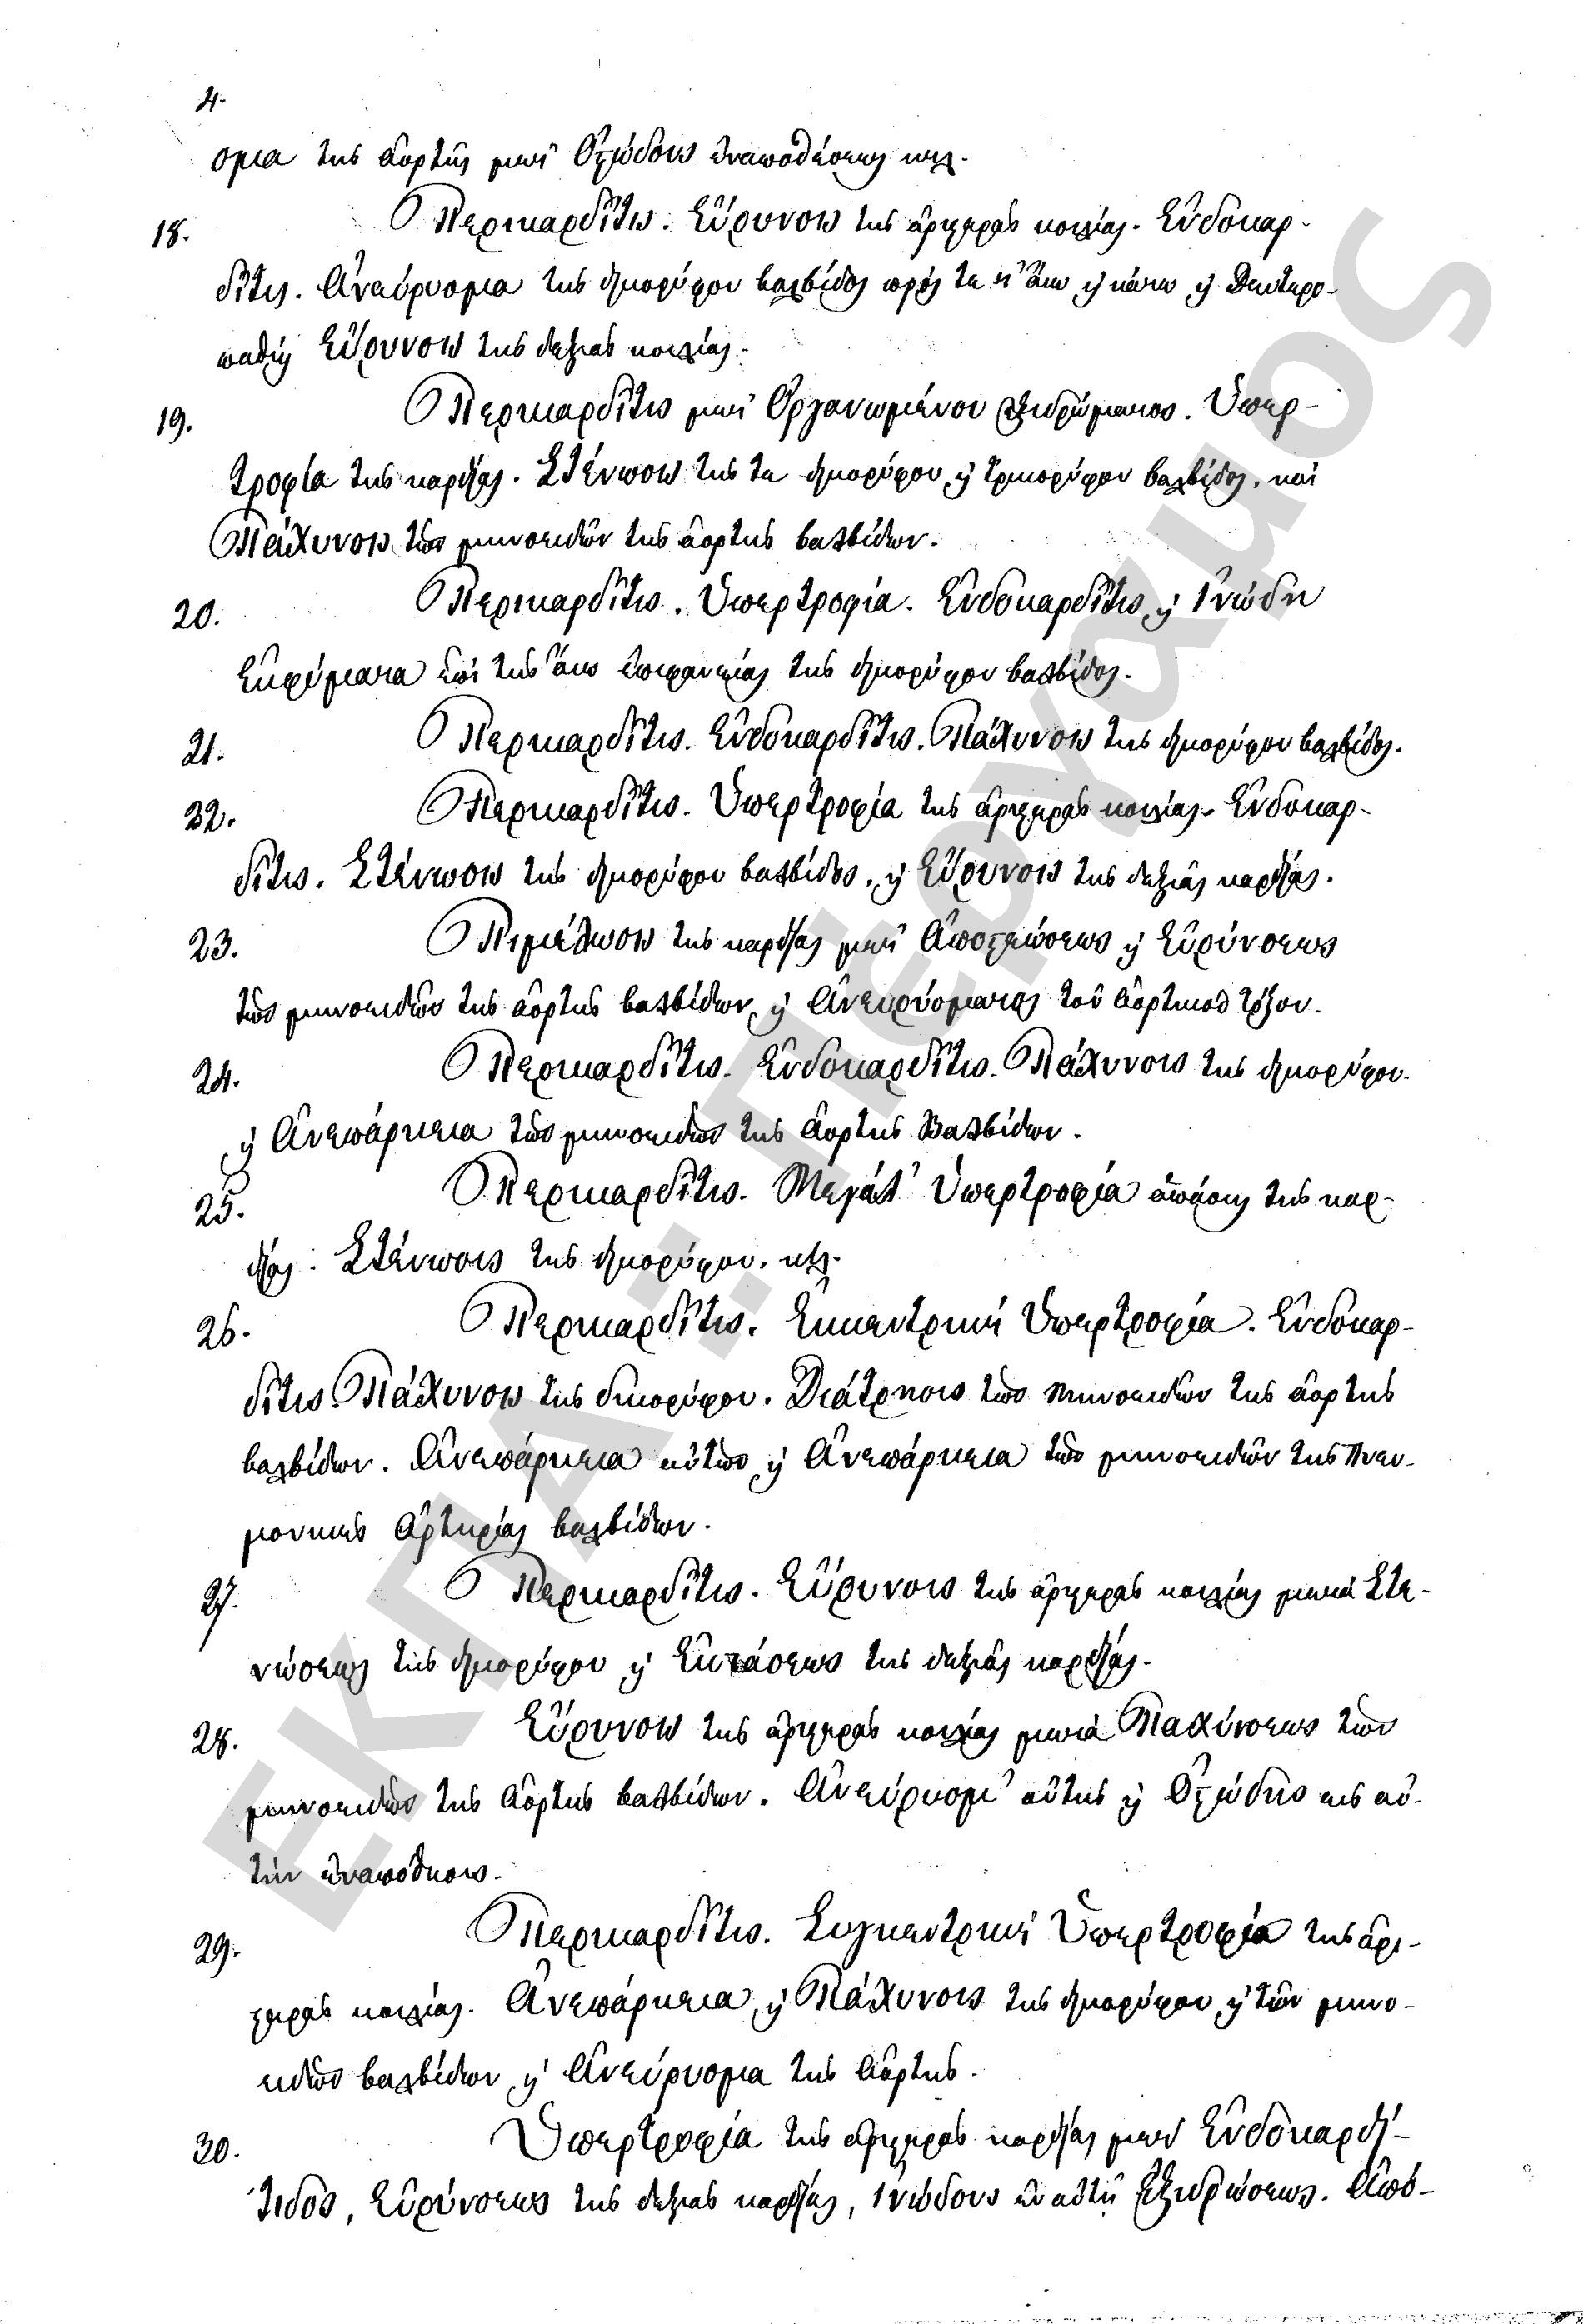 4.
σμα τῆς ἀορτῆς μετ' Ὀστώδους ἐναποθέσεως κτλ.
18. Περικαρδῖτις. Εὔρυνσις τῆς ἀριστερᾶς κοιλίας. Ἐνδοκαρ-
δῖτις. Ἀνεύρυσμα τῆς δικορύφου βαλβίδος πρὸς τὰ ἄνω ἢ κάτω ἢ Δευτερο-
παθὴς Εὔρυνσις τῆς δεξιᾶς κοιλίας.
19. Περικαρδῖτις μετ' Ὀργανωμένου ἐξιδρώματος. Ὑπερ-
τροφία τῆς καρδίας. Στένωσις τῆς τε δικορύφου ϗ τρικορύφου βαλβίδος, καὶ
Πάχυνσις τῶν μηνοειδῶν τῆς ἀορτῆς βαλβίδων.
20. Περικαρδῖτις. Ὑπερτροφία. Ἐνδοκαρδῖτις ϗ Ἰνώδη
Ἐκφύματα ἐπὶ τῆς ἄνω ἐπιφανείας τῆς δικορύφου βαλβίδος.
21. Περικαρδῖτις. Ἐνδοκαρδῖτις. Πάχυνσις τῆς δικορύφου βαλβίδος.
22. Περικαρδῖτις. Ὑπερτροφία τῆς ἀριστερᾶς κοιλίας. Ἐνδοκαρ-
δῖτις. Στένωσις τῆς δικορύφου βαλβίδος, ϗ Εὔρυνσις τῆς δεξιᾶς καρδίας.
23. Πιμέλωσις τῆς καρδίας μετ' Ἀποστεώσεως ϗ Εὐρύνσεως
τῶν μηνοειδῶν τῆς ἀορτῆς βαλβίδων, ϗ Ἀνευρύσματος τοῦ ἀορτικοῦ τόξου.
24. Περικαρδῖτις. Ἐνδοκαρδῖτις. Πάχυνσις τῆς δικορύφου
ϗ Ἀνεπάρκεια τῶν μηνοειδῶν τῆς ἀορτῆς Βαλβίδων.
25. Περικαρδῖτις. Μεγάλη Ὑπερτροφία ἁπάσης τῆς καρ-
δίας. Στένωσις τῆς δικορύφου. κτλ.
26. Περικαρδῖτις. Ἐκκεντρικὴ Ὑπερτροφία. Ἐνδοκαρ-
δῖτις. Πάχυνσις τῆς δικορύφου. Διάτρησις τῶν μηνοειδῶν τῆς ἀορτῆς
βαλβίδων. Ἀνεπάρκεια αὐτῶν ϗ Ἀνεπάρκεια τῶν μηνοειδῶν τῆς Πνευ-
μονικῆς ἀρτηρίας βαλβίδων.
27. Περικαρδῖτις. Εὔρυνσις τῆς ἀριστερᾶς κοιλίας μετὰ Στε-
νώσεως τῆς δικορύφου ϗ Ἐκτάσεως τῆς δεξιᾶς καρδίας.
28. Εὔρυνσις τῆς ἀριστερᾶς κοιλίας μετὰ Παχύνσεως τῶν
μηνοειδῶν τῆς ἀορτῆς βαλβίδων. Ἀνεύρυσμ' αὐτῆς ϗ Ὀστώδης εἰς αὐ-
τὴν ἐναπόθεσις.
29. Περικαρδῖτις. Συγκεντρικὴ Ὑπερτροφία τῆς ἀρι-
στερᾶς κοιλίας. Ἀνεπάρκεια ϗ Πάχυνσις τῆς δικορύφου ϗ τῶν μηνο-
ειδῶν βαλβίδων ϗ Ἀνεύρυσμα τῆς Ἀορτῆς.
30. Ὑπερτροφία τῆς ἀριστερᾶς καρδίας μετ' Ἐνδοκαρδί-
τιδος, Εὐρύνσεως τῆς δεξιᾶς καρδίας, Ἰνώδους ἐν αὐτῇ Ἐξιδρώσεως. Ἀπό-
ΕΚΠΑ - Πέργαμος